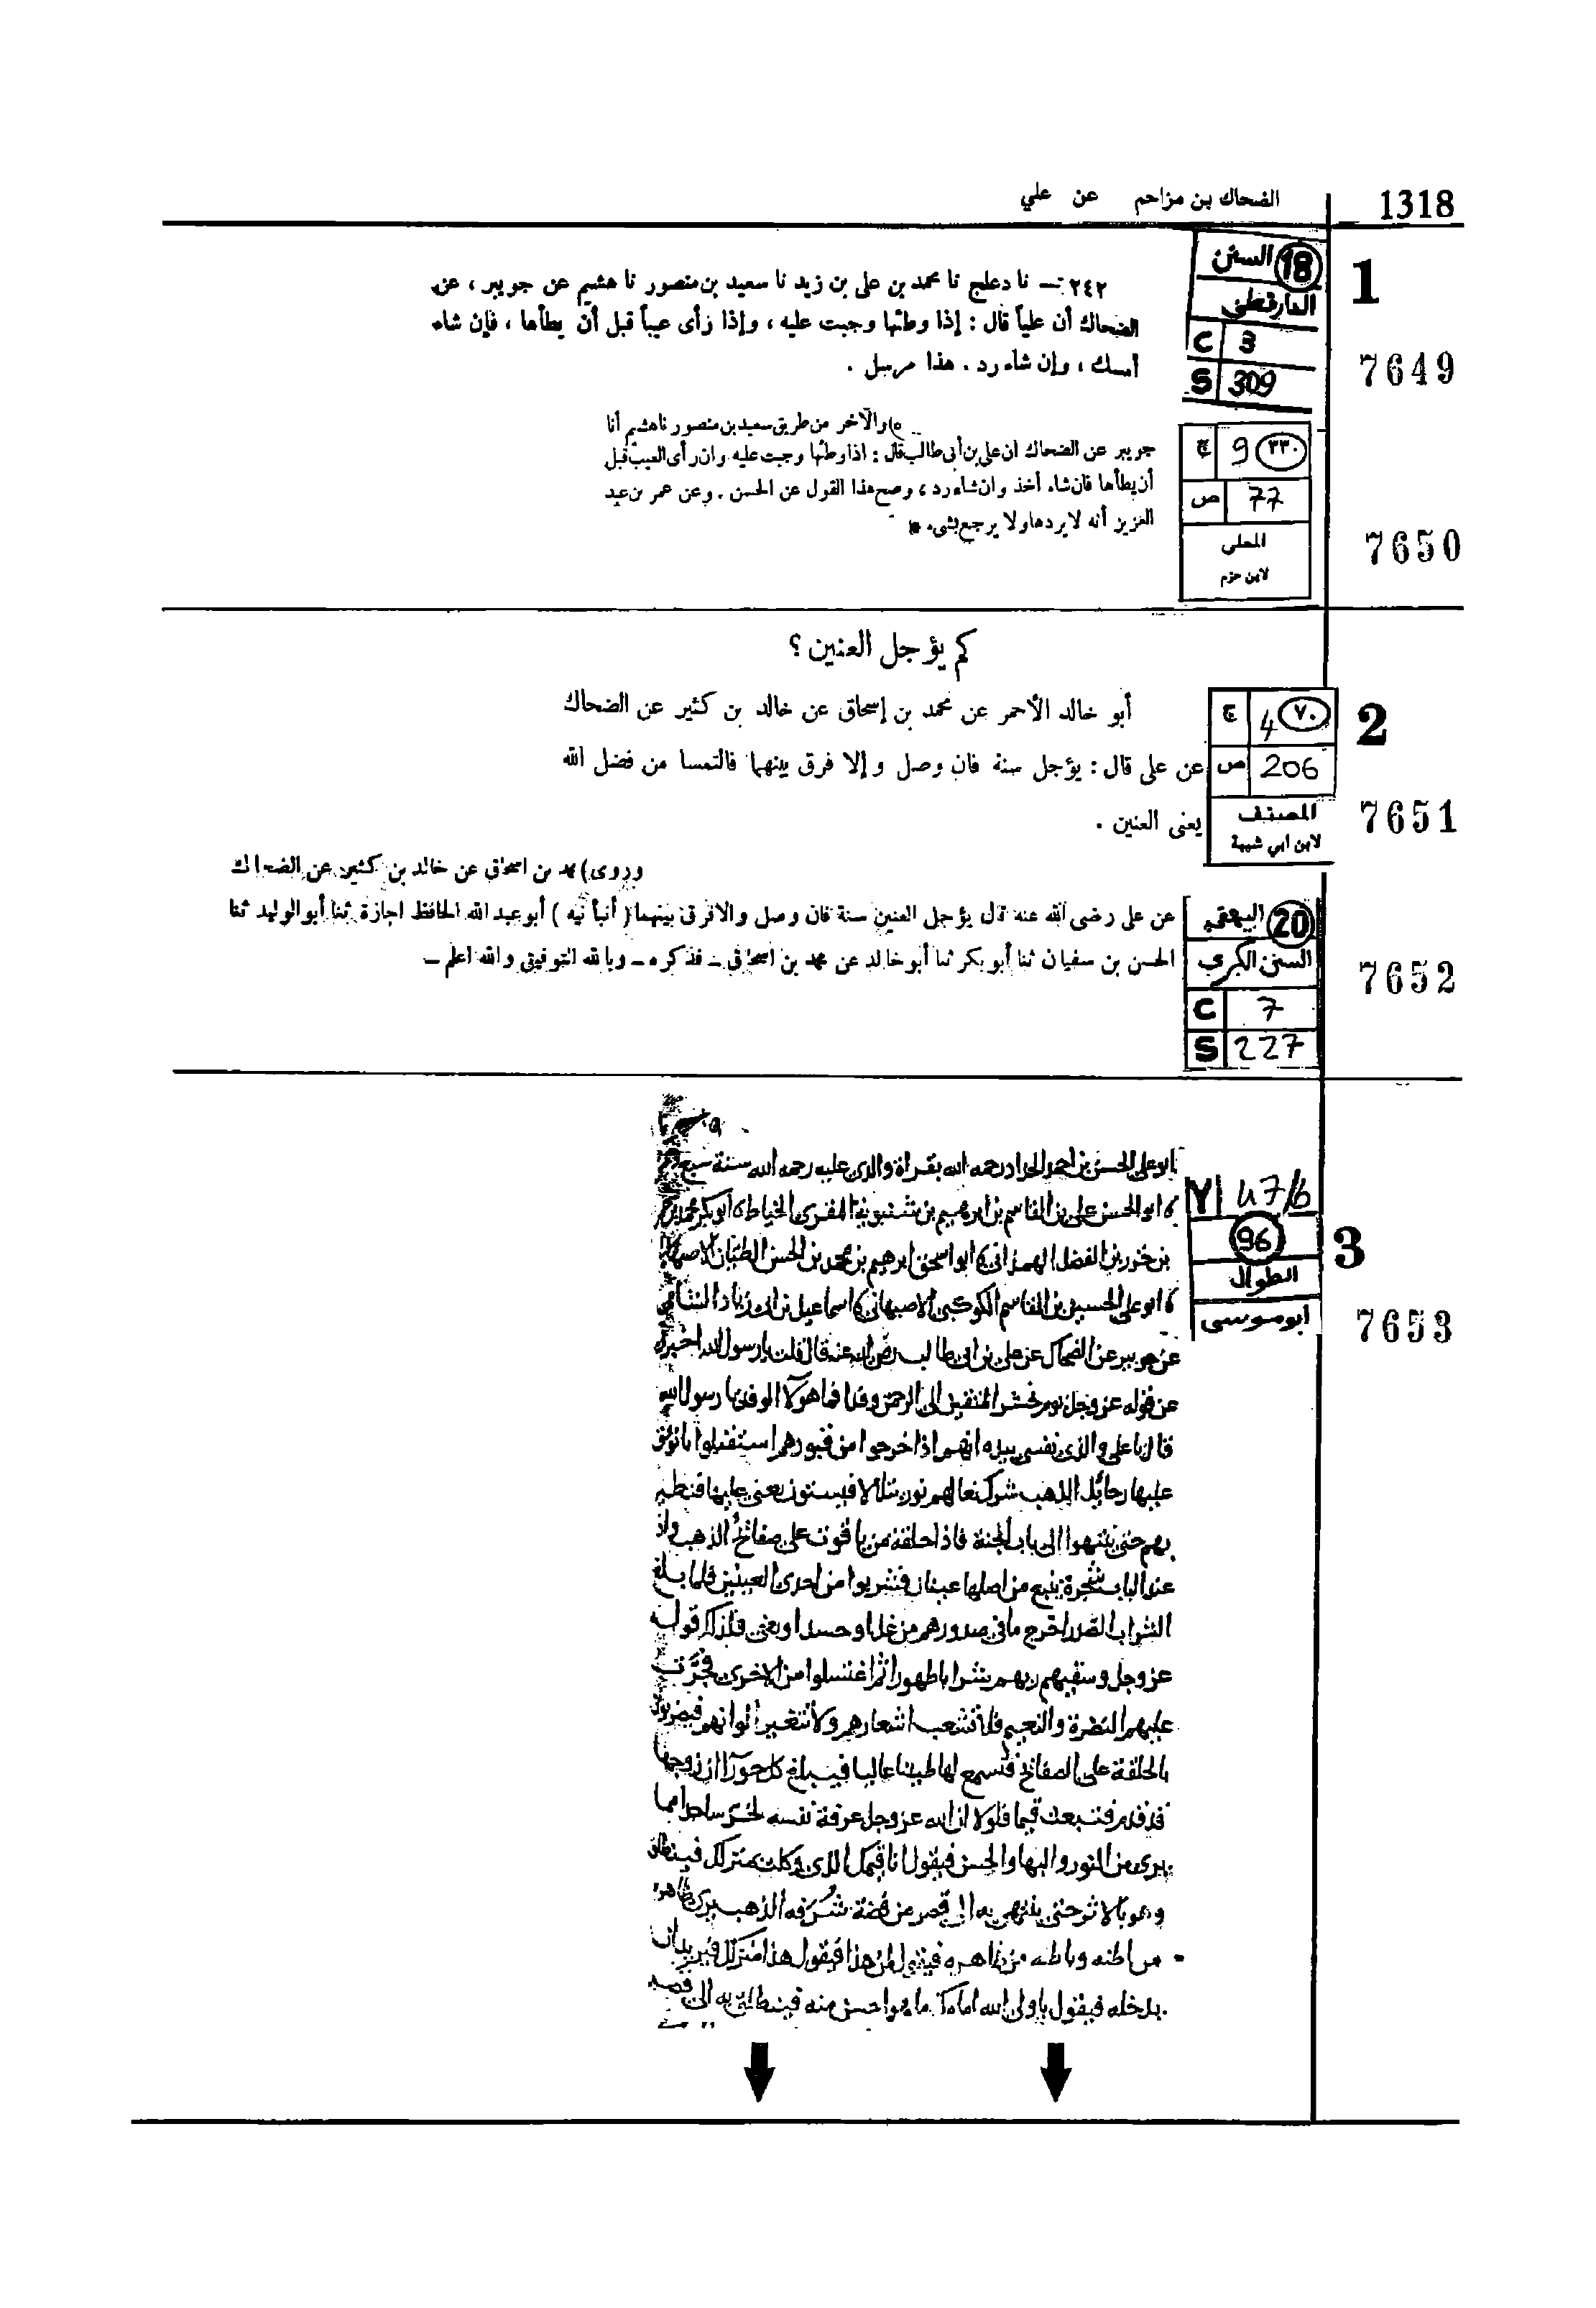 1318
الضحاك بن مزاحم عن علي
1
18 السنن
الدارقطني
C 3
S 309
7649
٢٤٢ — نا دعلج نا محمد بن على بن زيد نا سعيد بن منصور نا هشيم عن جويبر ، عن
الضحاك أن علياً قال : إذا وطئها وجبت عليه ، وإذا رأى عيباً قبل أن يطأها ، فإن شاء
أمسك ، وإن شاء رد . هذا مرسل .
٣٣٠ 9 ج
77 ص
المحلى
لابن حزم
7650
والآخر من طريق سعيد بن منصور نا هشيم أنا
جويبر عن الضحاك ان على بن أبى طالب قال : اذا وطئها وجبت عليه وان رأى العيب قبل
أن يطأها فان شاء أخذ وان شاء رد ، وصح هذا القول عن الحسن . وعن عمر بن عبد
العزيز أنه لا يردها ولا يرجع بشىء . *
كم يؤجل العنين ؟
2
٧٠ 4 ج
206 ص
المصنف
لابن ابي شيبة
7651
أبو خالد الأحمر عن محمد بن إسحاق عن خالد بن كثير عن الضحاك
عن على قال : يؤجل سنة فان وصل و إلا فرق بينهما فالتمسا من فضل الله
يعنى العنين .
20 البيهقي
السنن الكبرى
C 7
S 227
7652
وروى) محمد بن اسحاق عن خالد بن كثير عن الضحاك
عن على رضى الله عنه قال يؤجل العنين سنة فان وصل والا فرق بينهما ( أنبأنيه ) أبو عبد الله الحافظ اجازة ثنا أبو الوليد ثنا
الحسن بن سفيان ثنا أبو بكر ثنا أبو خالد عن محمد بن اسحاق – فذكره – وبالله التوفيق والله اعلم –
Y 47/6
96
الطوال
ابو موسى
3
7653
ابو على الحسن بن احمد الحداد رحمه الله بقراة والدى عليه رحمه الله سنة سبع
ابو الحسن على بن القاسم بن ابرهيم بن شنبويه المقرى الخياط ابو بكر محمد
بن الفضل الهمذانى ابو اسحق ابرهيم بن محمد بن الحسن الطيان الاصبهانى
ابو على الحسين بن القاسم الكوكبى الاصبهانى اسماعيل بن ابى زياد الشامى
عن جويبر عن الضحاك عن على بن ابى طالب رضى الله عنه قال قلت يا رسول الله اخبرنى
عن قوله عز وجل يوم نحشر المتقين الى الرحمن وفدا فما هولا الوفد يا رسول الله
قال يا على والذى نفسى بيده انهم اذا خرجوا من قبورهم استقبلوا بانوق
عليها رحائل الذهب شرك نعالهم نور يتلالا فيستوون يعنى عليها فتطير
بهم حتى ينتهوا الى باب الجنة فاذا حلقة من ياقوت على صفائح الذهب واذ
عند الباب شجرة ينبع من اصلها عينان فشربوا من احدى العينين فلما بلغ
الشراب الصدر اخرج ما فى صدورهم من غل او حسد او بغى فلذلك قول
عز وجل وسقيهم ربهم شرابا طهورا ثم اغتسلوا من الاخرى فجرت
عليهم النضرة والنعيم فلا تشعث اشعارهم ولا تتغير الوانهم فيضربون
بالحلقة على الصفائح فتسمع لها طنينا عاليا فيبلغ كل حورآ ان زوجها
قد قدم فتبعث قيما فلولا ان الله عز وجل عرفه نفسه لخر ساجدا مما
يرى من النور والبها والحسن فيقول انا قيمك الذى وكلت بمنزلك فينطلق
وهو بالاثر حتى ينتهى به الى قصر من فضة شرفه الذهب يرى ظاهره
من باطنه وباطنه من ظاهره فيقول لمن هذا فيقول هذا منزلك فيريد ان
يدخله فيقول يا ولى الله امامك ما هو احسن منه فينطلق به الى قصر